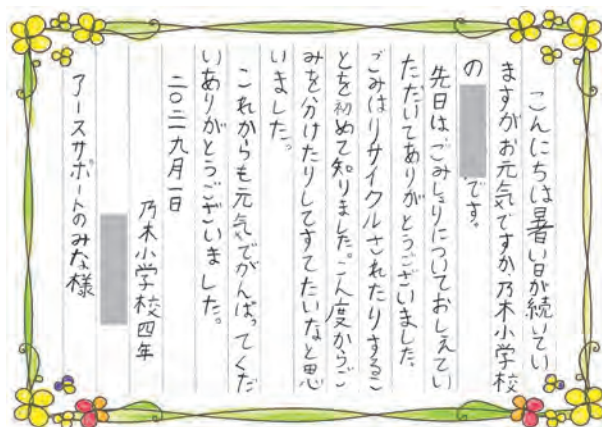 こんにちは暑い日が続いてい
ますがお元気ですか。乃木小学校
の です。
先日は、ごみしょりについておしえてい
ただいてありがとうございました。
ごみはリサイクルされたりするこ
とを初めて知りました。こん度からご
みを分けたりしてすてたいなと思
いました。
これからも元気でがんばってくだ
いありがとうございました。
二〇二一九月一日
乃木小学校四年
アースサポートのみな様